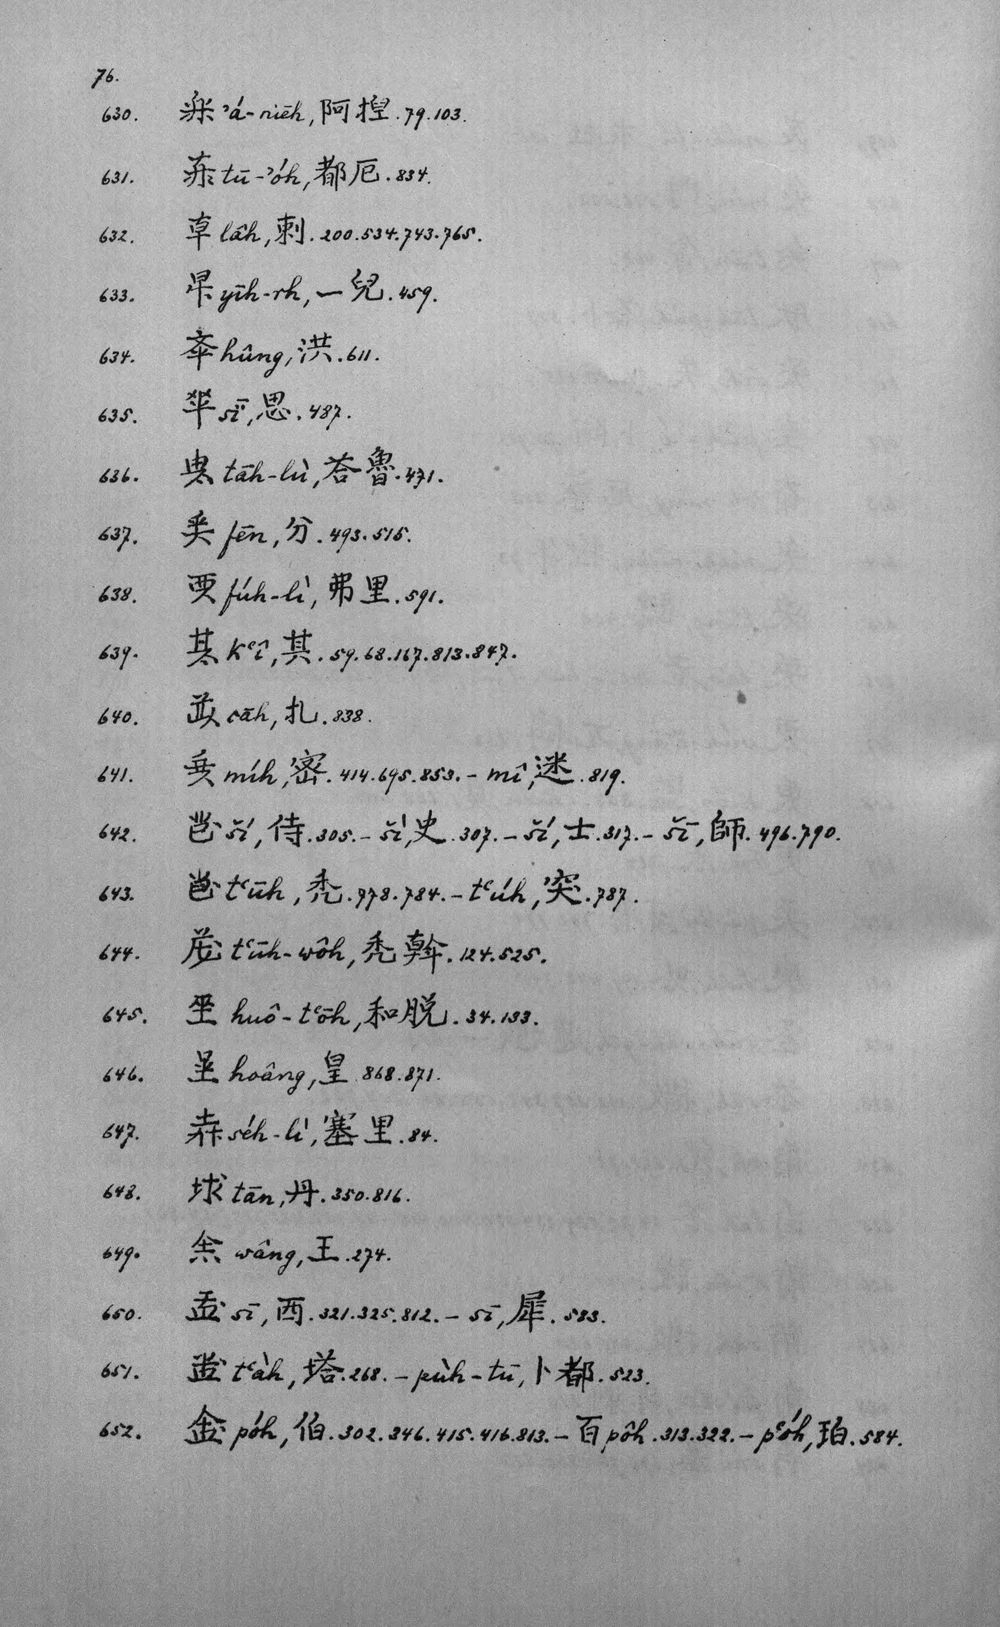 76.
630. ʾá-niēh, 阿揑. 79. 103.
631. tū-ʾóh, 都厄. 834.
632. lâh, 剌. 200. 534. 743. 765.
633. yīh-rh, 一兒. 459.
634. hûng, 洪. 611.
635. sī, 思. 487.
636. tāh-lù, 荅魯. 471.
637. fēn, 分. 493. 515.
638. fúh-lì, 弗里. 591.
639. kʿî, 其. 59. 68. 167. 813. 847.
640. cāh, 扎. 838.
641. míh, 密. 414. 695. 853. – mî, 迷. 819.
642. ší, 侍. 305. – šì, 史. 307. – ší, 士. 317. – šī, 師. 496. 790.
643. tʿūh, 禿. 778. 784. – tʿúh, 突. 787.
644. tʿūh-wôh, 禿斡. 124. 525.
645. huô-tʿōh, 和脱. 34. 133.
646. hoâng, 皇. 868. 871.
647. séh-lì, 塞里. 84.
648. tān, 丹. 350. 816.
649. wâng, 王. 274.
650. sī, 西. 321. 325. 812. – sī, 犀. 583.
651. tʿàh, 塔. 268. – pùh-tū, 卜都. 523.
652. póh, 伯. 302. 346. 415. 416. 813. – 百 pôh. 313. 322. – pʿóh, 珀. 584.